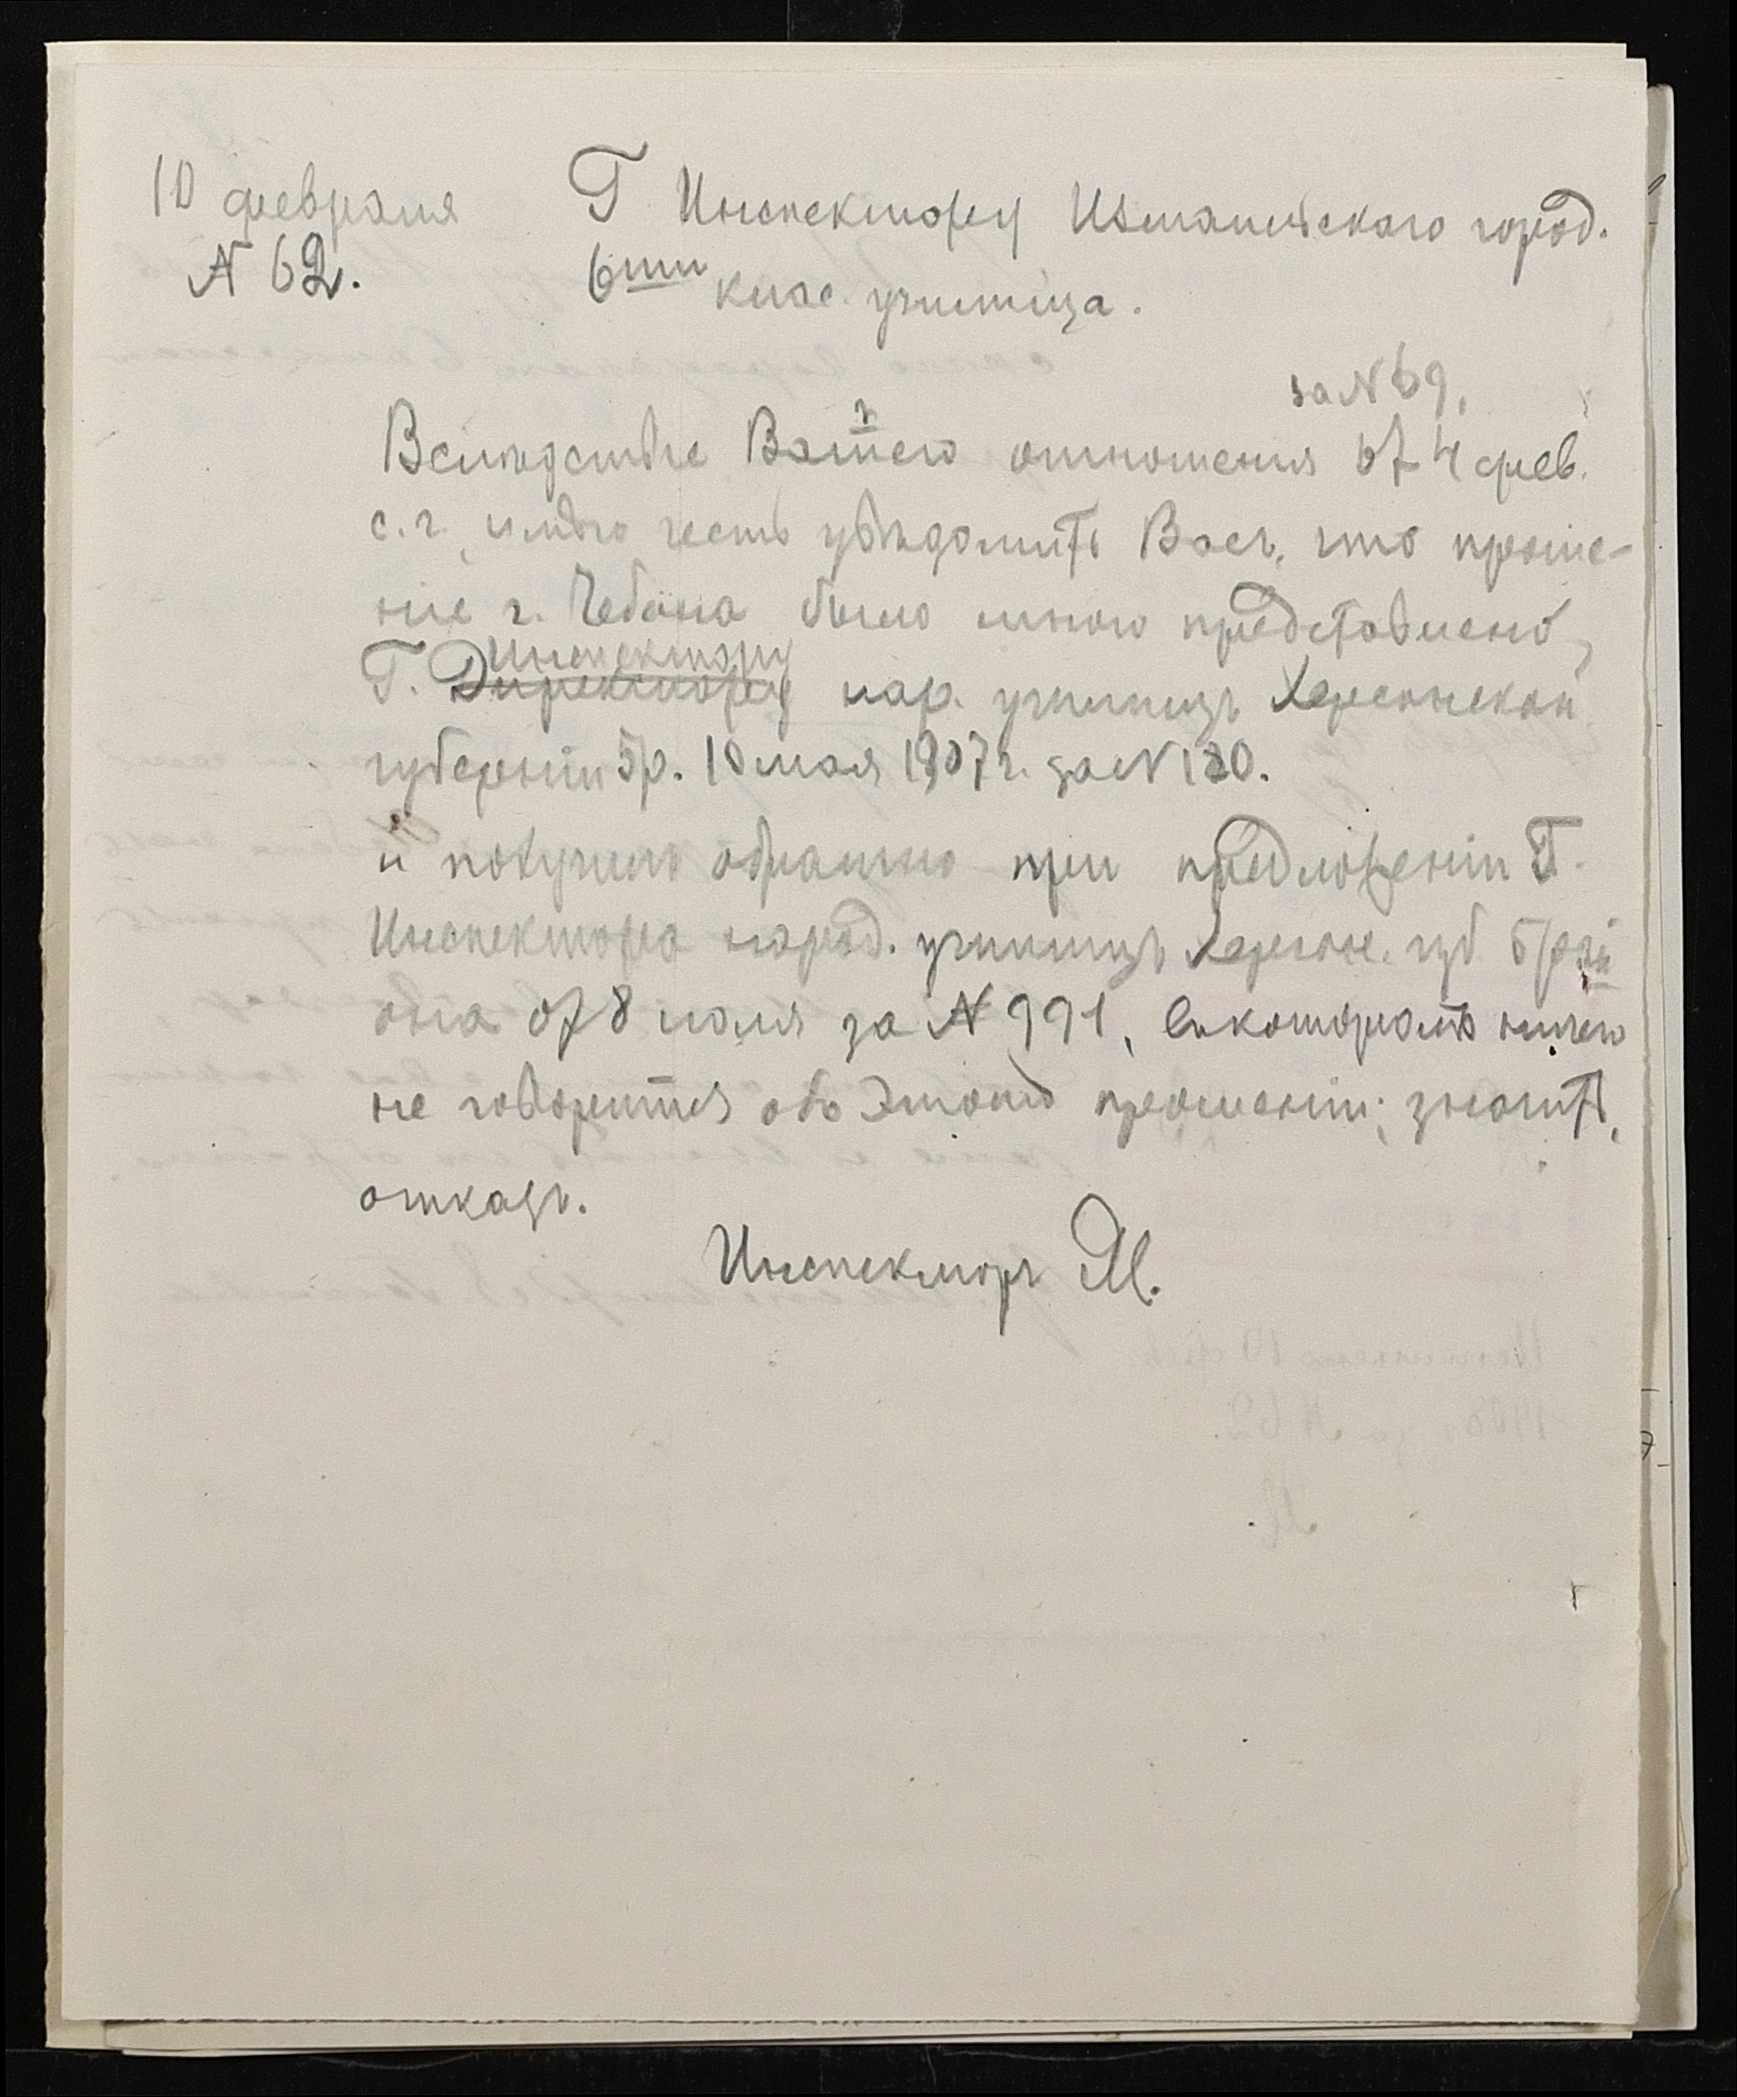 10 февраля
№ 62.
Г Инспектору Измаильскаго город.
6ти клас. училища.
за № 69,
Вследствіе Вашего отношенія от 4 фев.
с.г. имѣю честь увѣдомить Васъ, что проше-
ніе г. Чебана было мною представлено
Инспектору
Г. Директору нар. училищъ Херсонской
губерніи 5 р. 10 мая 1907 г. за № 120.
и получено обратно при предложеніи Г.
Инспектора народ. училищъ Херсон. губ 5 рай
она от 8 іюля за № 991, въ которомъ ничего
не говорится объ этомъ прошеніи; значитъ,
отказъ.
Инспекторъ М.